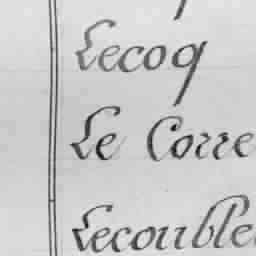 Lecoq
Le Corre
Lecouble